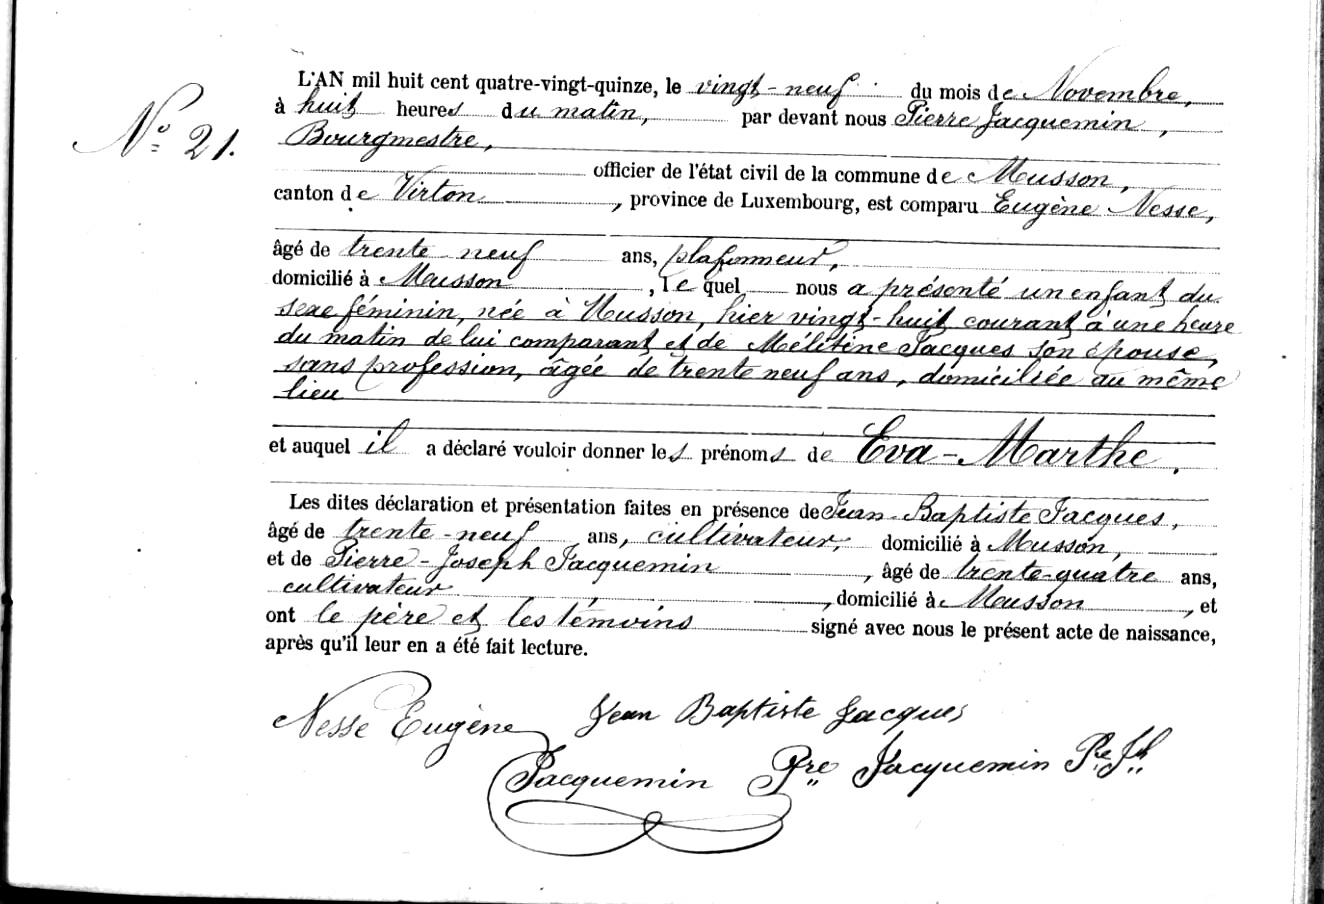 L'AN mil huit cent quatre-vingt-quinze, le vingt-neuf du mois de Novembre,
à huit heures du matin, par devant nous Pierre Jacquemin,
N° 21.
Bourgmestre,
officier de l'état civil de la commune de Musson,
canton de Virton, province de Luxembourg, est comparu Eugène Nesse,
âgé de trente neuf ans, plafonneur,
domicilié à Musson, lequel nous a présenté un enfant du
sexe féminin, née à Musson, hier vingt-huit courant à une heure
du matin de lui comparant et de Mélitine Jacques son épouse,
sans profession, âgée de trente neuf ans, domiciliée au même
lieu
et auquel il a déclaré vouloir donner les prénoms de Eva-Marthe.
Les dites déclaration et présentation faites en présence de Jean-Baptiste Jacques,
âgé de trente-neuf ans, cultivateur, domicilié à Musson,
et de Pierre-Joseph Jacquemin, âgé de trente-quatre ans,
cultivateur, domicilié à Musson, et
ont le père et les témoins signé avec nous le présent acte de naissance,
après qu'il leur en a été fait lecture.
Nesse Eugène Jean Baptiste Jacques
Jacquemin Pre Jacquemin Pre Jh